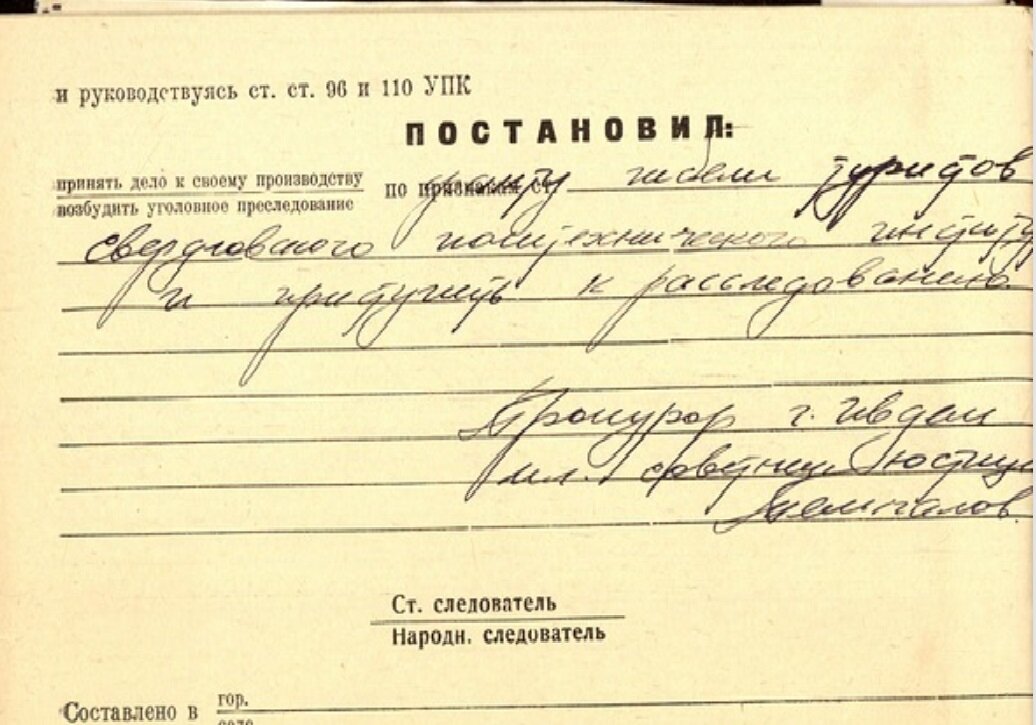 и руководствуясь ст. ст. 96 и 110 УПК
ПОСТАНОВИЛ:
принять дело к своему производству
возбудить уголовное преследование
по признакам ст. факту гибели туристов
свердловского политехнического институ
и приступить к расследованию
Прокурор г. Ивдель
мл. советник юстиц
Темпалов
Ст. следователь
Народн. следователь
Составлено в гор.